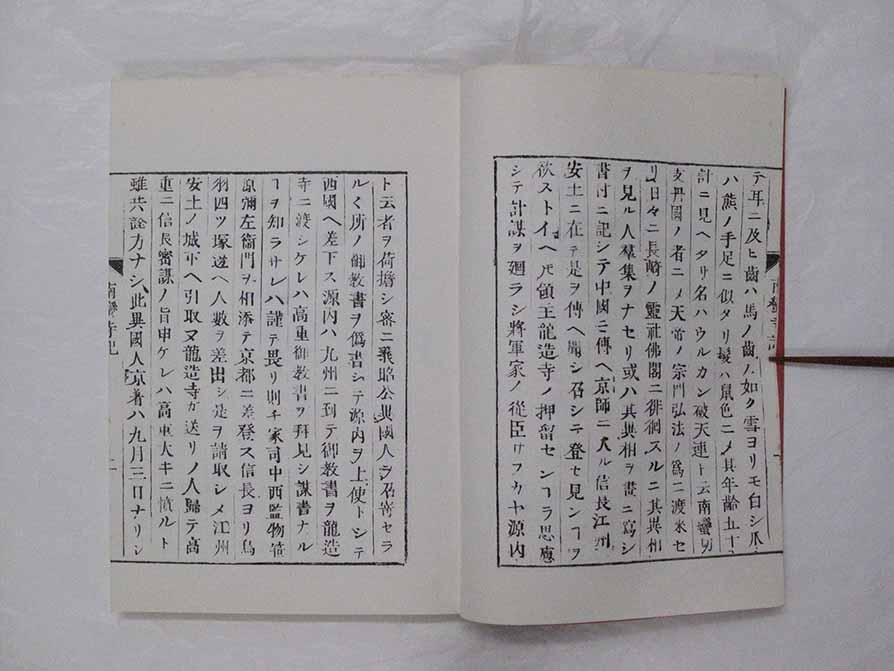 テ耳ニ及ヒ齒ハ馬ノ齒ノ如ク雪ヨリモ白シ爪
ハ熊ノ手足ニ似タリ髪ハ鼠色ニメ其年齢五十
計ニ見ヘタリ名ハウルカン破天連ト云南蠻切
支丹國ノ者ニメ天帝ノ宗門弘法ノ爲ニ渡来セ
リ日々ニ長崎ノ靈社佛閣ニ徘徊スルニ其異相
ヲ見ル人羣集ヲナセリ或ハ其異相ヲ畫ニ寫シ
書付ニ記シテ中國ニ傳ヘ京師ニ入ル信長江州
安土ニ在テ是ヲ傳ヘ聞シ召シテ登セ見ンヿヲ
欲ストイヘ𪜈領主龍造寺ノ押留センヿヲ思慮
シテ計謀ヲ廻ラシ將軍家ノ從臣サフカヤ源内
南蠻寺記
ト云者ヲ荷擔シ密ニ義昭公異國人ヲ召寄セラ
ルヽ所ノ御教書ヲ僞書シテ源内ヲ上使トシテ
西國ヘ差下ス源内ハ九州ニ到テ御教書ヲ龍造
寺ニ渡シケレハ高重御教書ヲ拜見シ謀書ナル
ヿヲ知ラサレハ謹テ畏リ則チ家司中西監物笛
原彌左衞門ヲ相添テ京都ニ差登ス信長ヨリ鳥
羽四ツ塚邉ヘ人數ヲ差出シ是ヲ請取シメ江州
安土ノ城下ヘ引取ヌ龍造寺カ送リノ人歸テ高
重ニ信長密謀ノ旨申ケレハ高重大キニ憤ルト
雖共詮方ナシ此異國人京着ハ九月三日ナリシ
南蠻寺記
二